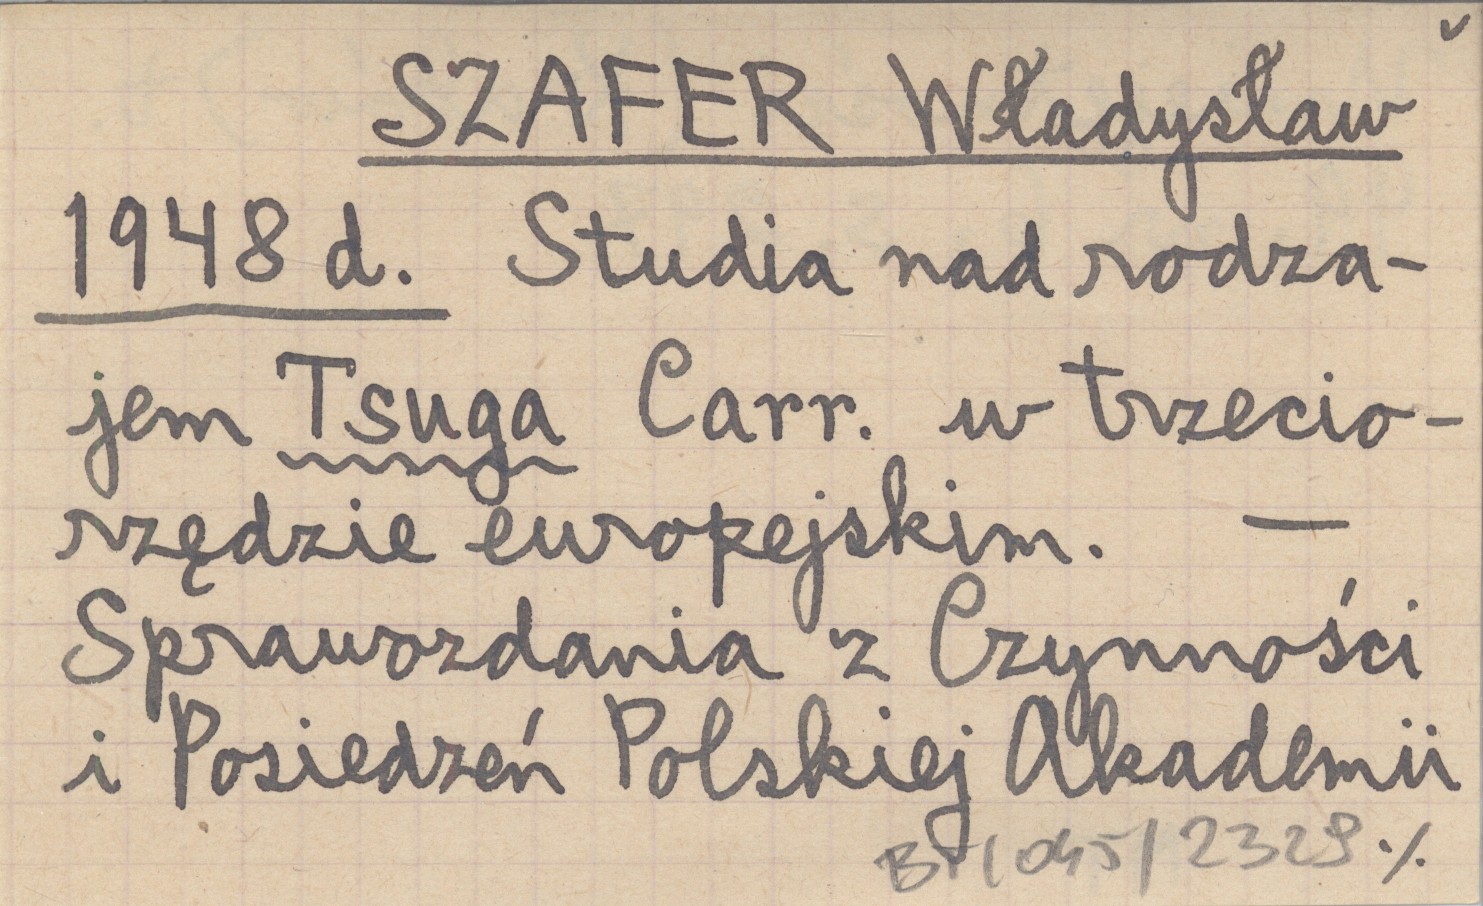 SZAFER Władysław
1948 d. Studia nad rodza-
jem Tsuga Carr. w trzecio-
rzędzie europejskim. —
Sprawozdania z Czynności
i Posiedzeń Polskiej Akademii
/045/2329 ./.